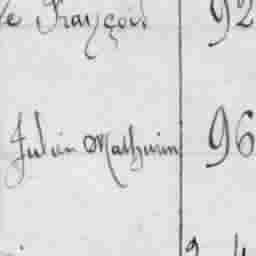 François 92
Julien Mathurin 96